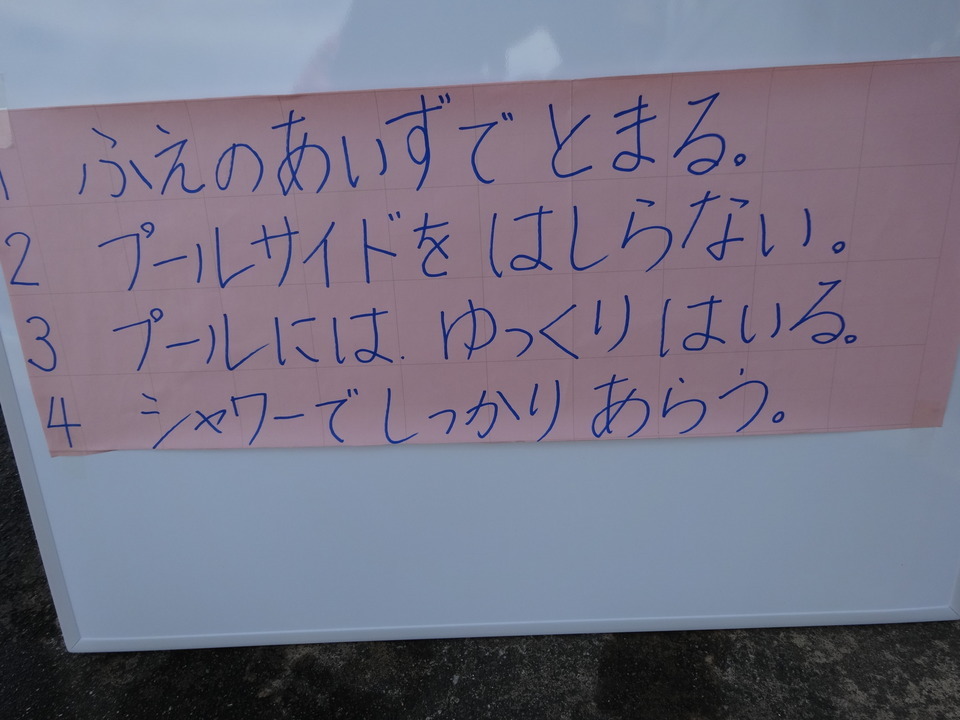 1 ふえのあいずで とまる。
2 プールサイドを はしらない。
3 プールには ゆっくり はいる。
4 シャワーでしっかり あらう。